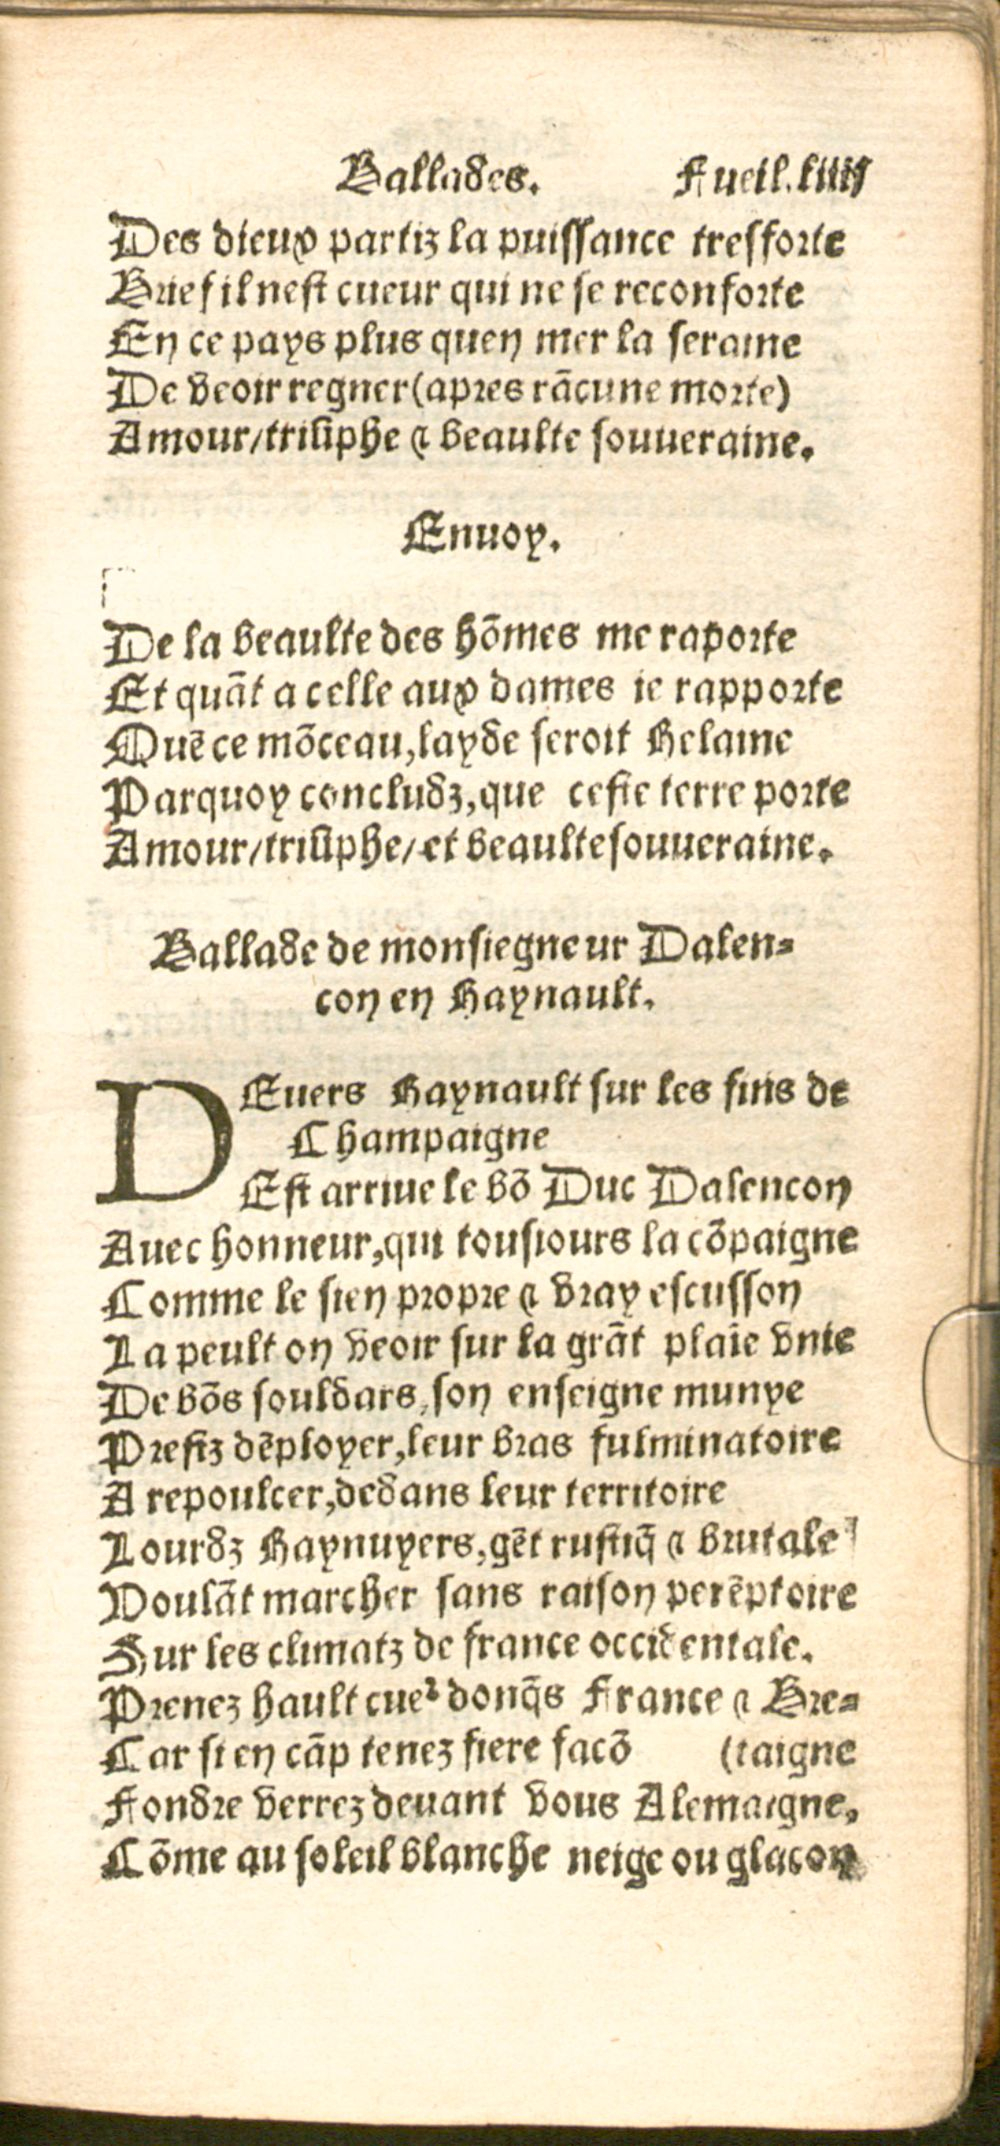 Ballades. Fueil. liiii
Des dieux partiz la puissance tresforte
Brief il nest cueur qui ne se reconforte
En ce pays plus quen mer la seraine
De veoir regner (apres rãcune morte)
Amour/triũphe ⁊ beaulte souueraine.
Enuoy.
De la beaulte des hõmes me raporte
Et quãt a celle aux dames ie rapporte
Quẽ ce mõceau, layde seroit Helaine
Parquoy concludz, que ceste terre porte
Amour/triũphe/et beaulte souueraine.
Ballade de monsiegneur Dalen-
con en Haynault.
DEuers Haynault sur les fins de
Champaigne
Est arriue le bõ Duc Dalencon
Auec honneur, qui tousiours la cõpaigne
Comme le sien propre ⁊ vray escusson
La peult on veoir sur la grãt plaie vnie
De bõs souldars, son enseigne munye
Prestz dẽployer, leur bras fulminatoire
A repoulcer, dedans leur territoire
Lourdz Haynuyers, gẽt rustiq̃ ⁊ brutale
Voulãt marcher sans raison perẽptoire
Sur les climatz de france occidentale.
Prenez hault cueꝛ donq̃s France ⁊ Bre-
Car si en cãp tenez fiere facõ (taigne
Fondre verrez deuant vous Alemaigne,
Cõme au soleil blanche neige ou glacon